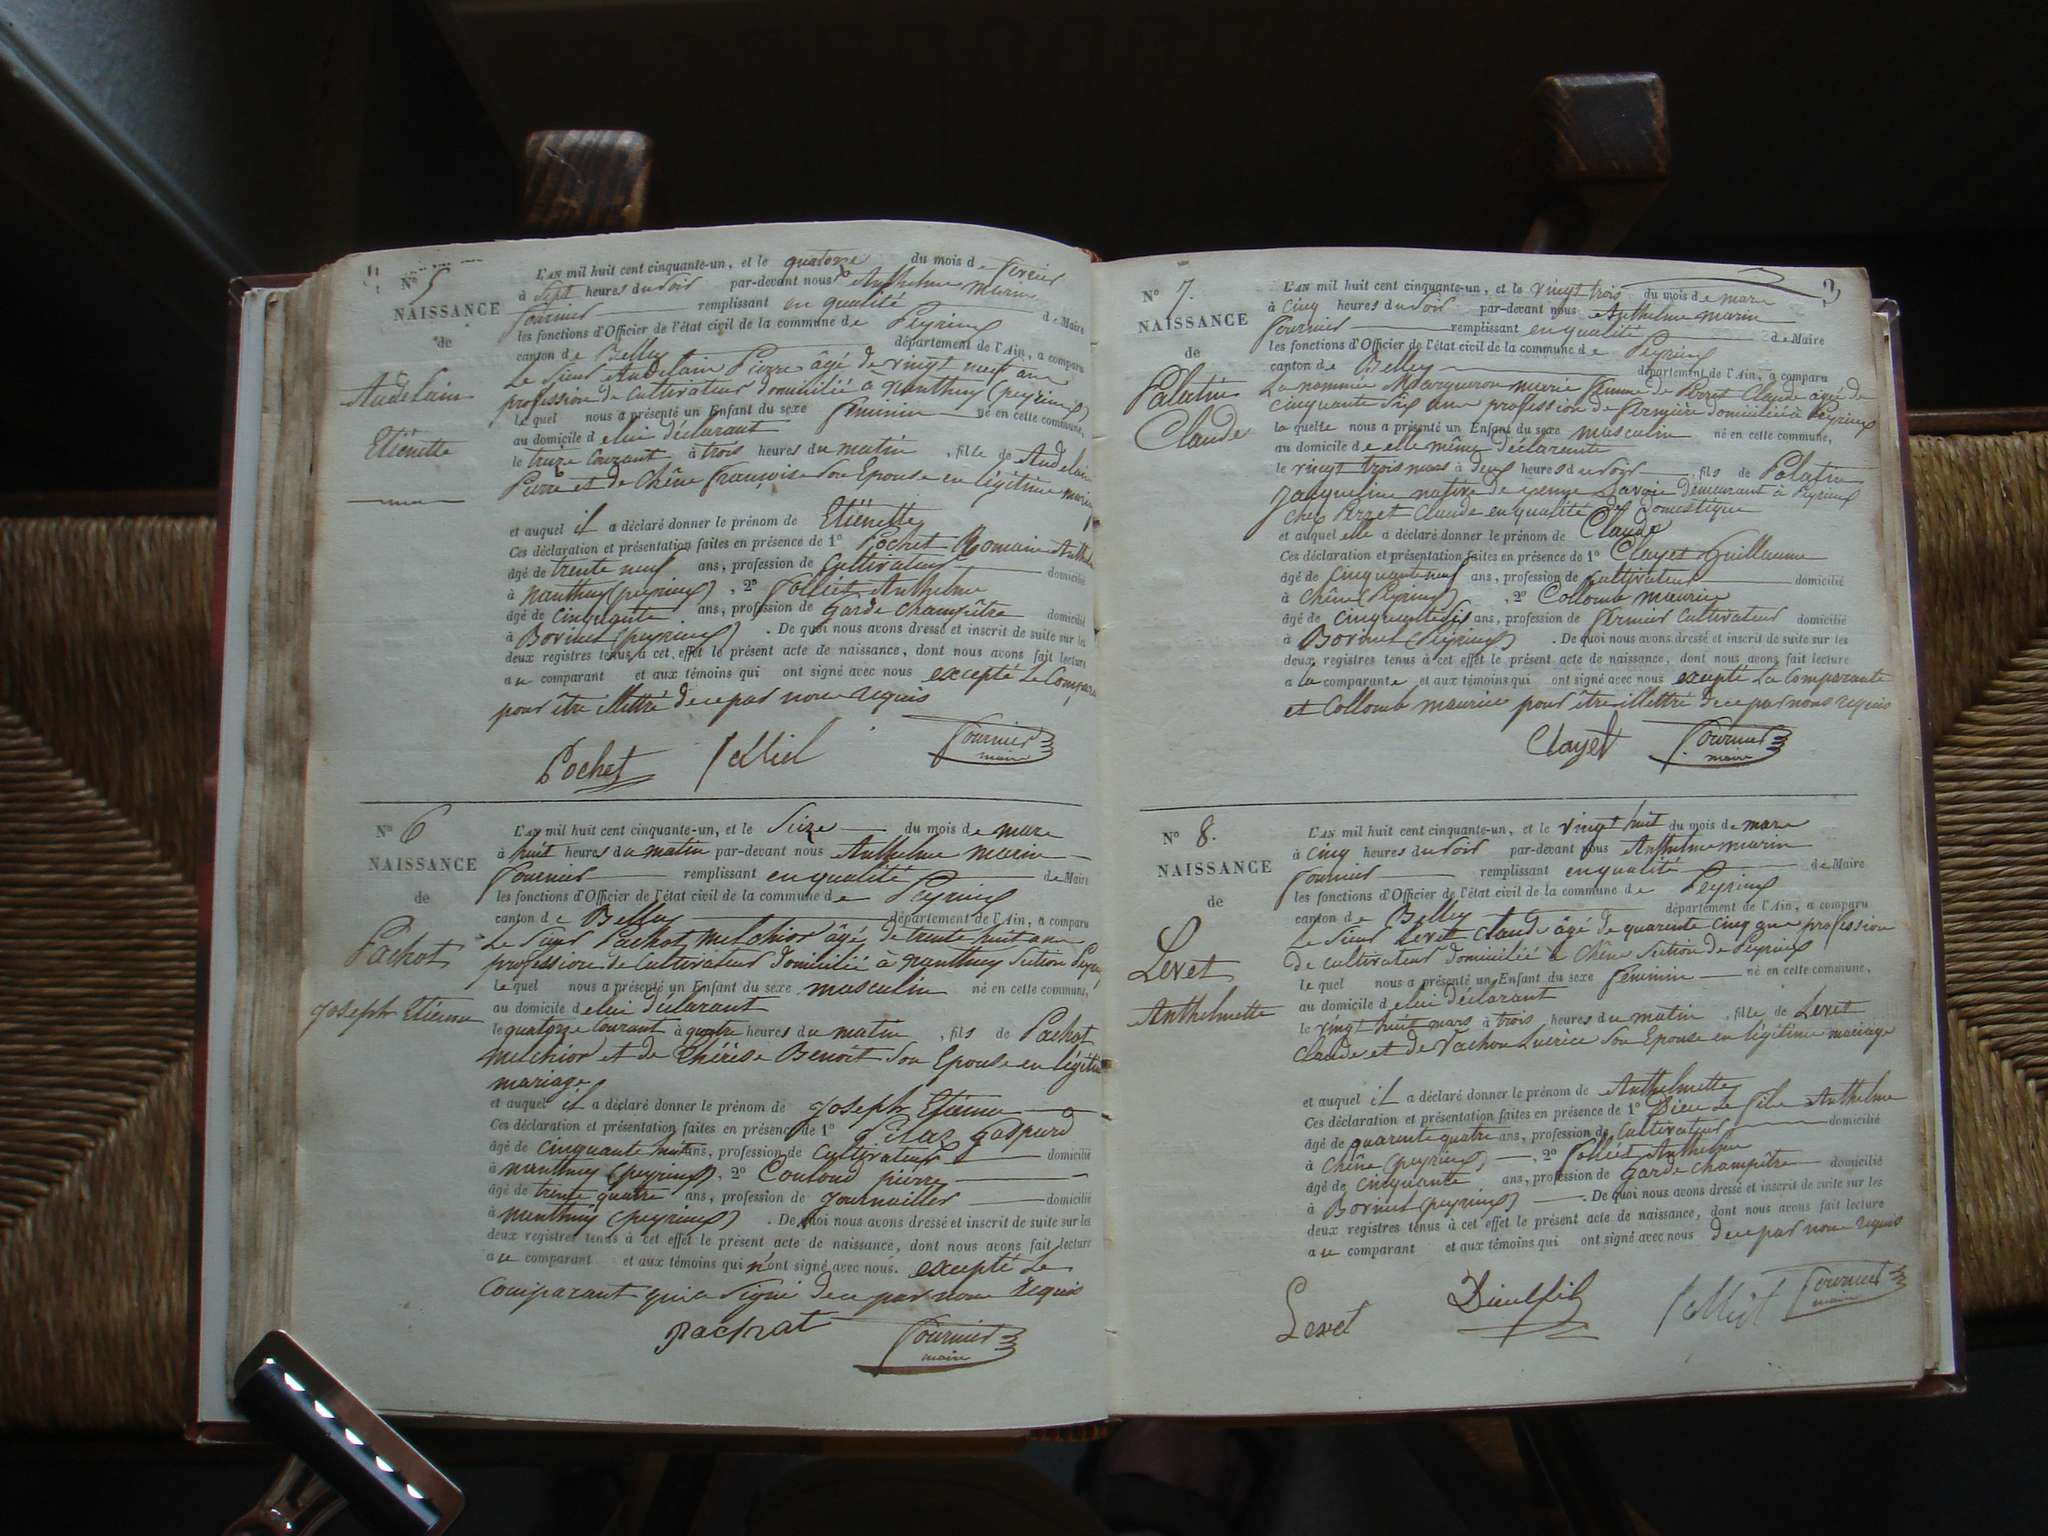 N° 5
NAISSANCE
de
Audelain
Etiénette
L'AN mil huit cent cinquante-un, et le quatorze du mois de fevrier
à Sept heures du Soir par-devant nous Anthelme Marin
Fournier remplissant en qualité de Maire
les fonctions d'Officier de l'état civil de la commune de Peyrieux
canton de Belley département de l'Ain, a comparu
Le Sieur Audelain Pierre âgé de vingt neuf ans
profession de Cultivateur domicilié à Nanthuy (peyrieux)
le quel nous a présenté un Enfant du sexe féminin né en cette commune,
au domicile de lui déclarant
le treize Courant à trois heures du matin, fille de Audelain
Pierre et de Chêne Françoise Son Epouse en légitime mariage
et auquel il a déclaré donner le prénom de Etiénette
Ces déclaration et présentation faites en présence de 1° Pochet Romain
âgé de trente neuf ans, profession de Cultivateur domicilié
à Nanthuy (peyrieux), 2° Folliet Anthelme
âgé de Cinquante ans, profession de garde champêtre domicilié
à Borinet (peyrieux). De quoi nous avons dressé et inscrit de suite sur les
deux registres tenus à cet effet le présent acte de naissance, dont nous avons fait lecture
au comparant et aux témoins qui ont signé avec nous excepté Le Compara
pour être illettré de ce par nous requis
Pochet Folliet Fournier
maire
N° 6
NAISSANCE
de
Pachot
Joseph Etienne
L'AN mil huit cent cinquante-un, et le Seize du mois de mars
à huit heures du matin par-devant nous Anthelme Marin
Fournier remplissant en qualité de Maire
les fonctions d'Officier de l'état civil de la commune de Peyrieux
canton de Belley département de l'Ain, a comparu
Le Sieur Pachot Melchior âgé de trente huit ans
profession de Cultivateur domicilié à Nanthuy Section
le quel nous a présenté un Enfant du sexe masculin né en cette commune,
au domicile de lui déclarant
le quatorze Courant à quatre heures du matin, fils de Pachot
Melchior et de Thérèse Benoit Son Epouse en légitime
mariage
et auquel il a déclaré donner le prénom de Joseph Etienne
Ces déclaration et présentation faites en présence de 1° Pilaz Gaspard
âgé de cinquante huit ans, profession de Cultivateur domicilié
à Nanthuy (peyrieux), 2° Couloud pierre
âgé de trente quatre ans, profession de journalier domicilié
à Nanthuy (peyrieux). De quoi nous avons dressé et inscrit de suite sur les
deux registres tenus à cet effet le présent acte de naissance, dont nous avons fait lecture
au comparant et aux témoins qui n'ont signé avec nous. excepté Le
Comparant qui a signé de ce par nous requis
Pachot Fournier
maire
3
N° 7.
NAISSANCE
de
Palatin
Claude
L'AN mil huit cent cinquante-un, et le vingt trois du mois de mars
à cinq heures du Soir par-devant nous Anthelme marin
Fournier remplissant en qualité de Maire
les fonctions d'Officier de l'état civil de la commune de Peyrieux
canton de Belley département de l'Ain, a comparu
La nommée Marqueron marie femme de Perret Claude âgée de
cinquante six ans profession de fermière domiciliée à Peyrieux
la quelle nous a présenté un Enfant du sexe masculin né en cette commune,
au domicile de elle même déclarente
le vingt trois mars à deux heures du soir, fils de Palatin
Jacqueline native de yenne Savoie demeurant à Peyrieux
chez Perret Claude en qualité de domestique
et auquel elle a déclaré donner le prénom de Claude
Ces déclaration et présentation faites en présence de 1° Clayet Guillaume
âgé de cinquante neuf ans, profession de Cultivateur domicilié
à Chêne (Peyrieux), 2° Collomb Maurice
âgé de cinquante six ans, profession de fermier Cultivateur domicilié
à Borinet (Peyrieux). De quoi nous avons dressé et inscrit de suite sur les
deux registres tenus à cet effet le présent acte de naissance, dont nous avons fait lecture
a la comparante et aux témoins qui ont signé avec nous excepté La Comparante
et Collomb Maurice pour être illettré de ce par nous requis
Clayet Fournier
maire
N° 8.
NAISSANCE
de
Levet
Anthelmette
L'AN mil huit cent cinquante-un, et le vingt huit du mois de mars
à cinq heures du Soir par-devant nous Anthelme marin
Fournier remplissant en qualité de Maire
les fonctions d'Officier de l'état civil de la commune de Peyrieux
canton de Belley département de l'Ain, a comparu
Le Sieur Levet Claude âgé de quarente cinq ans profession
de cultivateur domicilié à Chêne Section de Peyrieux
le quel nous a présenté un Enfant du sexe féminin né en cette commune,
au domicile de lui déclarant
le vingt huit mars à trois heures du matin, fille de Levet
Claude et de Vachon Luerice Son Epouse en légitime mariage
et auquel il a déclaré donner le prénom de Anthelmette
Ces déclaration et présentation faites en présence de 1° Dieu Le fils Anthelme
âgé de quarente quatre ans, profession de Cultivateur domicilié
à Chêne (peyrieux), 2° Folliet Anthelme
âgé de cinquante ans, profession de garde champêtre domicilié
à Borinet (peyrieux). De quoi nous avons dressé et inscrit de suite sur les
deux registres tenus à cet effet le présent acte de naissance, dont nous avons fait lecture
au comparant et aux témoins qui ont signé avec nous de ce par nous requis
Levet Dieulfils Folliet Fournier
maire